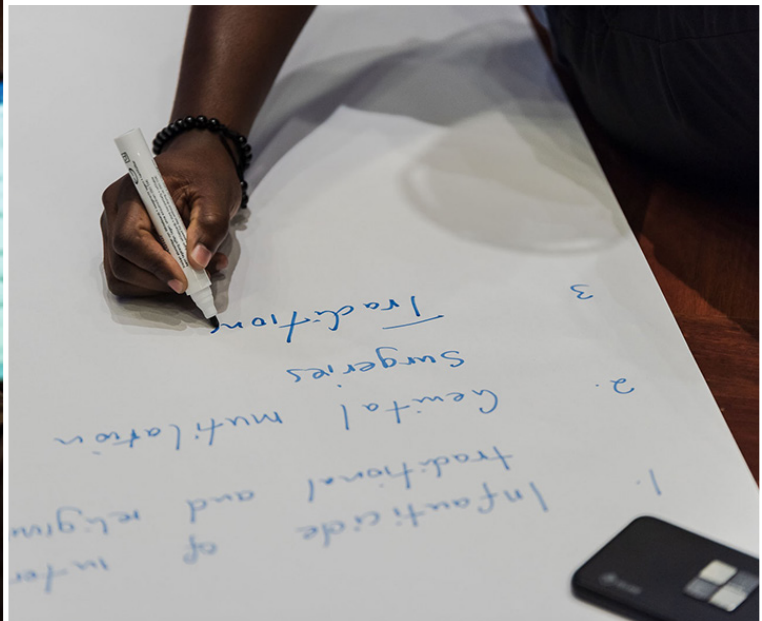 1. Infanticide of inter
traditional and religiou
2. Genital mutilation
Surgeries
3 Tradition